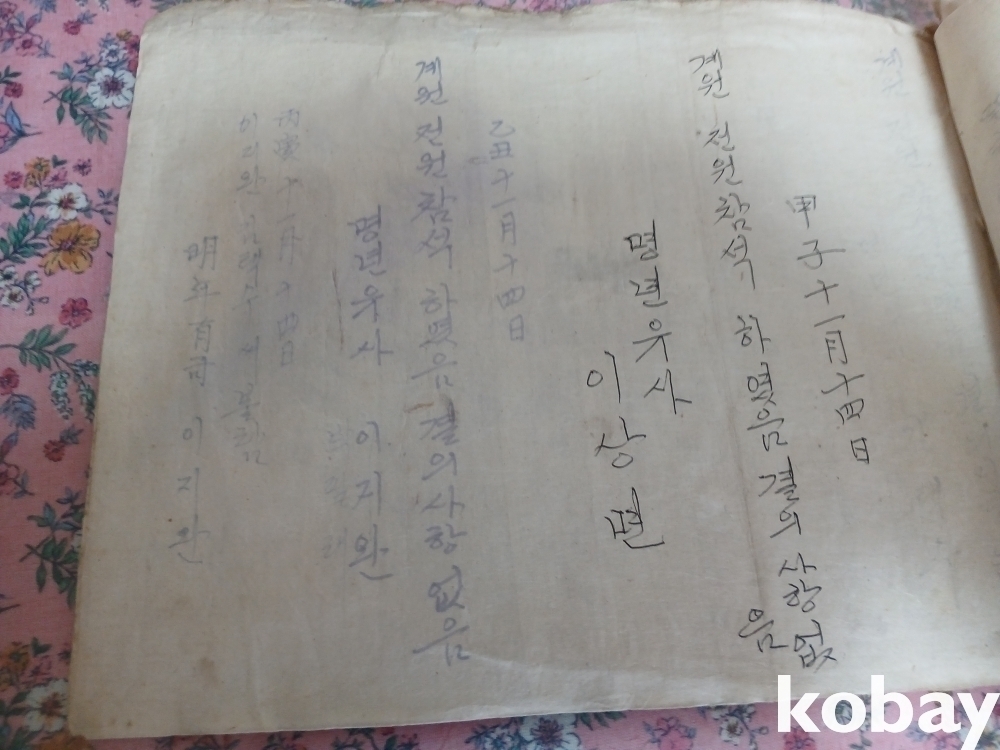 甲子十一月十四日
계원 전원 참석 하였음 결의 사항 없
음
명년유사
이상
乙丑十一月十四日
계원 전원 참석 하였음 결의사항 없음
명년유사 이지완
丙寅十一月十四日
이지완 불참
明年有司 이지완
kobay